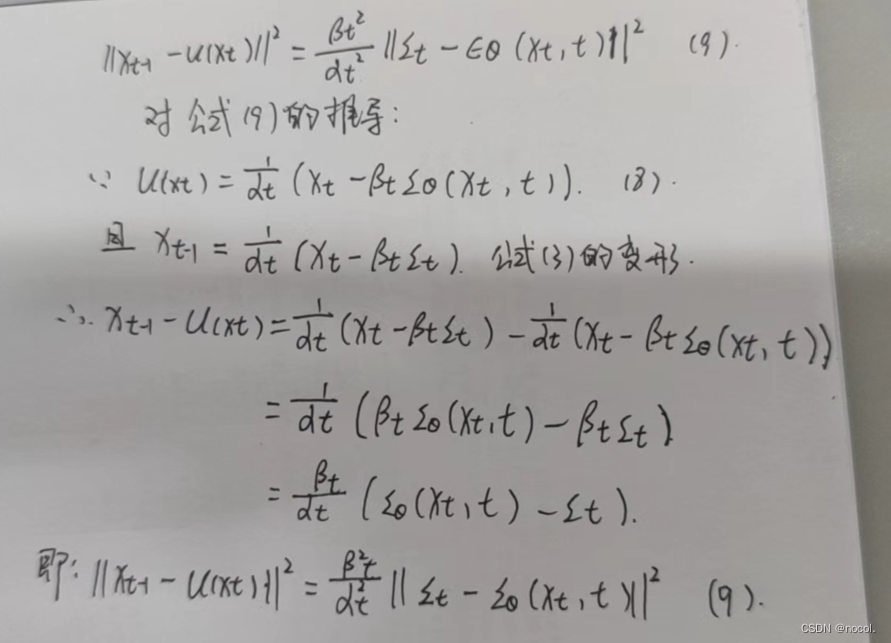 ||xt-1 - u(xt)||² = βt²/αt² ||εt - ϵθ(xt, t)||² (9).
对公式(9)的推导:
∵ u(xt) = 1/αt (xt - βt εθ(xt, t)). (8).
且 xt-1 = 1/αt (xt - βt εt). 公式(3)的变形.
∴ xt-1 - u(xt) = 1/αt (xt - βt εt) - 1/αt (xt - βt εθ(xt, t))
= 1/αt (βt εθ(xt, t) - βt εt)
= βt/αt (εθ(xt, t) - εt).
即: ||xt-1 - u(xt)||² = β²t/α²t ||εt - εθ(xt, t)||² (9).
CSDN @nocol.